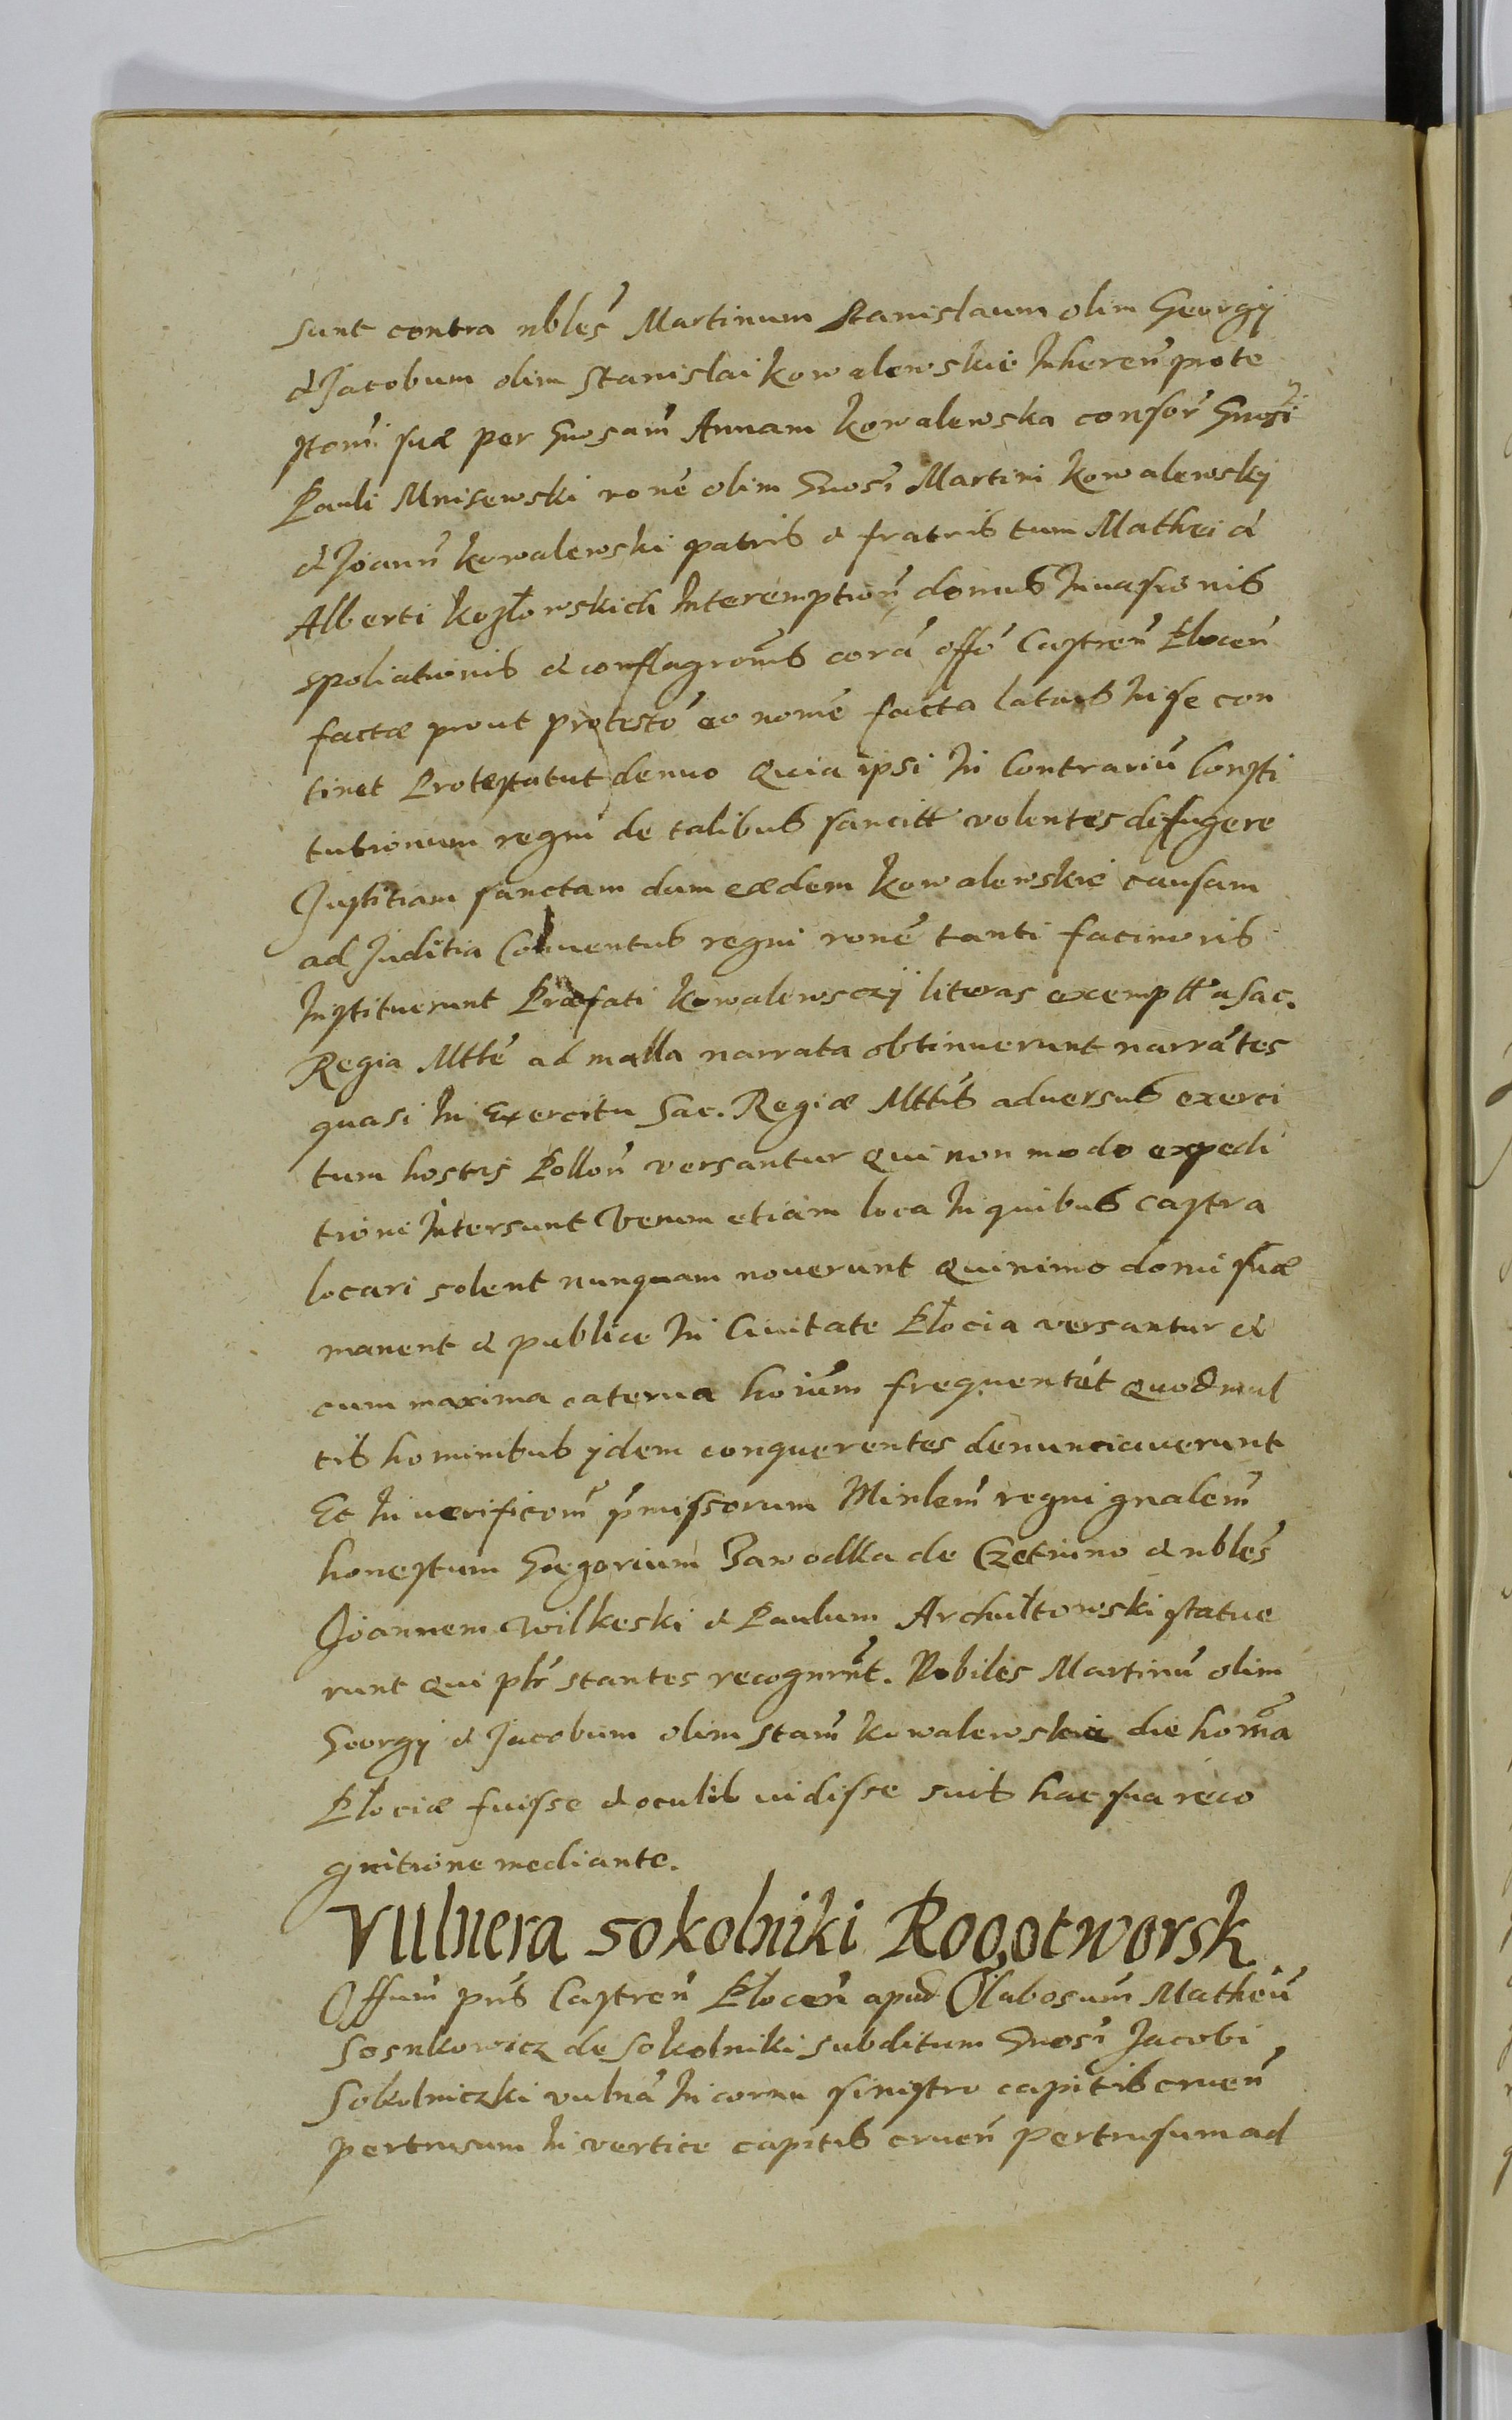 sunt contra nbles Martinum Stanislaum olim Georgij
& Jacobum olim Stanislai Kowalewskie Inheren prote
stoni suæ per Gnosam Annam Kowalewska consor Gnosi
Pauli Mnisewski rone olim Gnosi Martini Kowalewskij
& Joann Kowalewski patris & fratris tum Mathei &
Alberti Kozłowskich Interemption domus Inuasionis
spoliationis & conflagronis corā offo Castren Plocen
factæ prout protesto eo nomē facta latius In se con
tinet Protestatut denuo Quia ipsi In Contrariū Consti
tutionum regni de talibus sancitt volentes defugere
Justitiam sanctam dum eædem Kowalewskie causam
ad Juditia Conuentus regni ronē tanti facinoris
Instituerunt Præfati Kowalewsczÿ literas exempttas a Sac.
Regia Mtte ad malla narrata obtinuerunt narrātes
quasi In Exercitu Sac. Regiæ Mttis aduersus exerci
tum hostis Pollon versantur Qui non modo expedi
tioni Intersunt Verum etiam loca In quibus castra
locari solent nunquam nouerunt Quinimo domi suæ
manent & publice In Ciuitate Płocia versantur &
cum maxima caterua hoium frequentāt Quod mul
tis hominibus ijdem conquerentes denunciauerunt
Et In uerificom pmissorum Minlem regni gnalem
honestum Gregorium Zawodka de Czetnino & nbles
Joannem Wilkeski & Paulum Archutowski statue
runt Qui phr stantes recognrnt. Nobiles Martinū olim
Georgij & Jacobum olim Stan Kowalewskie die horna
Płociæ fuisse & oculis uidisse suis hac sua reco
gnitione mediante.
Vulnera sokolniki Rogotworsk
Offium pns Castren Płocen apud Olabosum Matheū
Sosnkowicz de Sokolniki subditum Gnosi Jacobi
Sokolniczki vulnā In cornu sinistro capitis cruen
pertusum In vertice capitis cruen pertusum ad